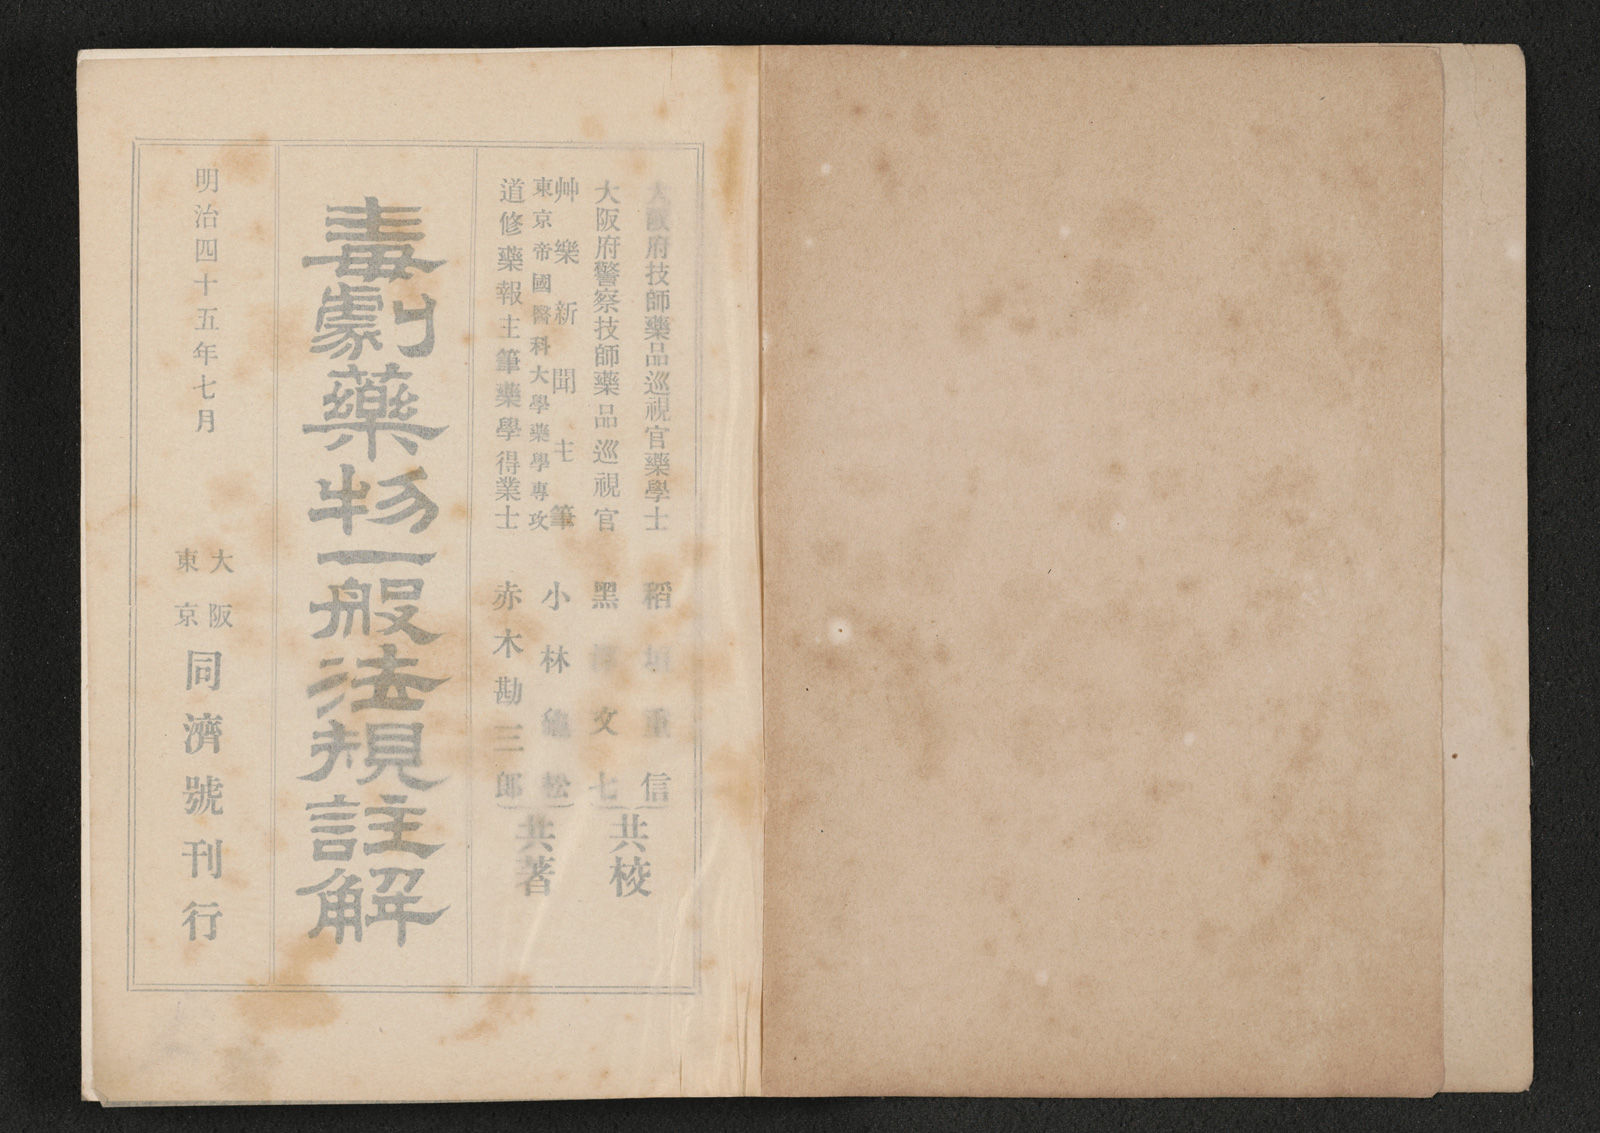 大阪府技師藥品巡視官藥學士 稻垣重信
大阪府警察技師藥品巡視官 黑澤文七
共校
艸樂新聞主筆
東京帝國醫科大學藥學專攻 小林龜松
道修藥報主筆藥學得業士 赤木勘三郎
共著
毒劇藥物一般法規註解
明治四十五年七月
大阪
東京
同濟號刊行